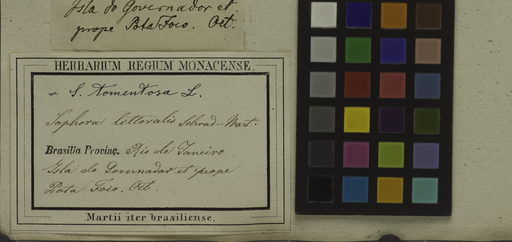 Isla do Governador et
prope Bota Foco. Oct.
HERBARIUM REGIUM MONACENSE.
S. tomentosa L.
Sophora littoralis Schrad. Mart.
Brasilia Provinc. Rio de Janeiro
Isla do Governador et prope
Bota Foco. Oct.
Martii iter brasiliense.